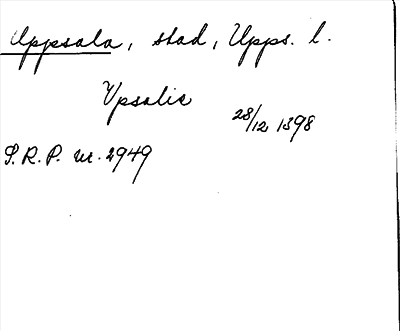 Uppsala, stad, Upps. l.
Vpsalie
28/12 1398
S.R.P. nr. 2949